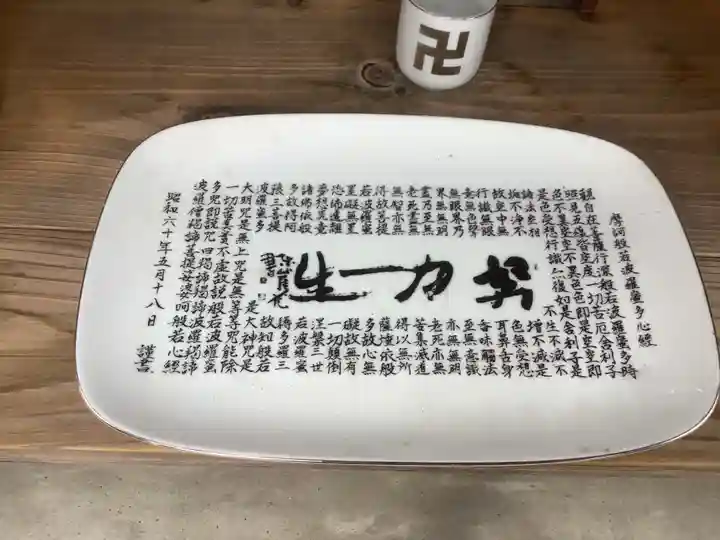 摩訶般若波羅蜜多心経
観自在菩薩行深般若波羅蜜多時
照見五蘊皆空度一切苦厄舎利子
色不異空空不異色色即是空空即
是色受想行識亦復如是舎利子是
諸法空相不生不滅不
垢不浄不増不減是
故空中無色無受想
行識無眼耳鼻舌身
意無色聲香味觸法
無眼界乃至無意識
界無無明亦無無明
盡乃至無老死亦無
老死盡無苦集滅道
無智亦無得以無所
得故菩提薩埵依般
若波羅蜜多故心無
罣礙無罣礙故無有
恐怖遠離一切顛倒
夢想究竟涅槃三世
諸佛依般若波羅蜜
多故得阿耨多羅三
藐三菩提故知般若
波羅蜜多是大神咒是
大明咒是無上咒是無等等咒能除
一切苦真實不虚故説般若波羅蜜
多咒即説咒曰羯諦羯諦波羅羯諦
波羅僧羯諦菩提娑婆呵般若心經
昭和六十年五月十八日 謹書
努力一生
卍